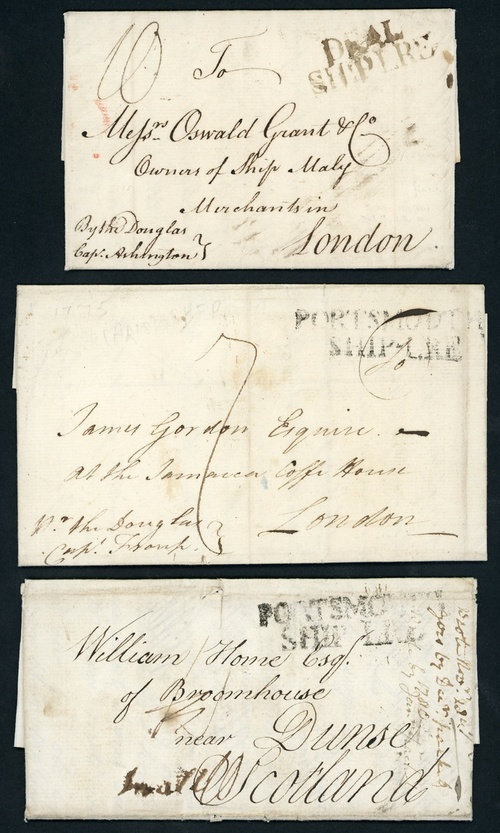 10
DEAL
SHIP LRE
To
Messrs Oswald Grant & Co
Owners of Ship Maly
Merchants in
London.
By the Douglas
Capt. Ashington
1775
PORTSMOUTH
SHIP-LRE
7
To
James Gordon Esquire.
At the Jamaica Coffe House
London
Pr the Douglas
Capt. Froup.
PORTSMOUTH
SHIP LRE
William Home Esqr.
of Broomhouse
near Dunse
Scotland